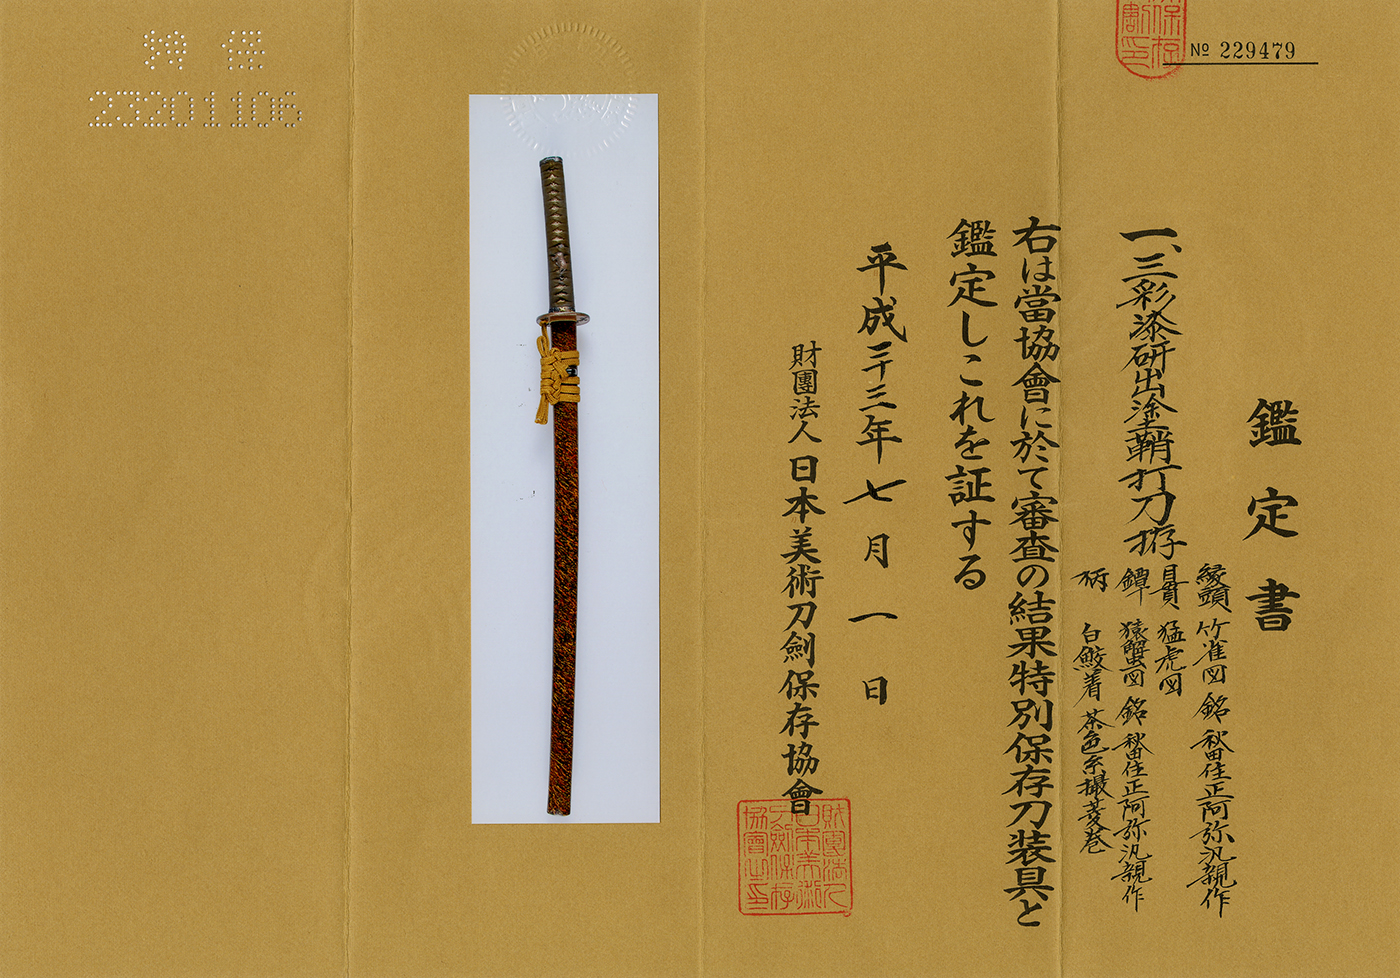 № 229479
鑑定書
一、三彩漆研出塗鞘打刀拵
縁頭 竹雀図 銘 秋田住正阿弥汎親作
目貫 猛虎図
鐔 猿蟹図 銘 秋田住正阿弥汎親作
柄 白鮫着 茶色糸撮菱巻
右は當協會に於て審査の結果特別保存刀装具と
鑑定しこれを証する
平成二十三年七月一日
財團法人日本美術刀劍保存協會
財團法人
日本美術
刀劍保存
協會之印
特保
23201106